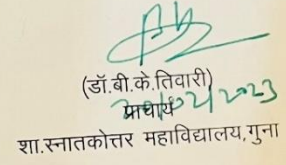 (डॉ.बी.के.तिवारी)
प्राचार्य
शा.स्नातकोत्तर महाविद्यालय,गुना